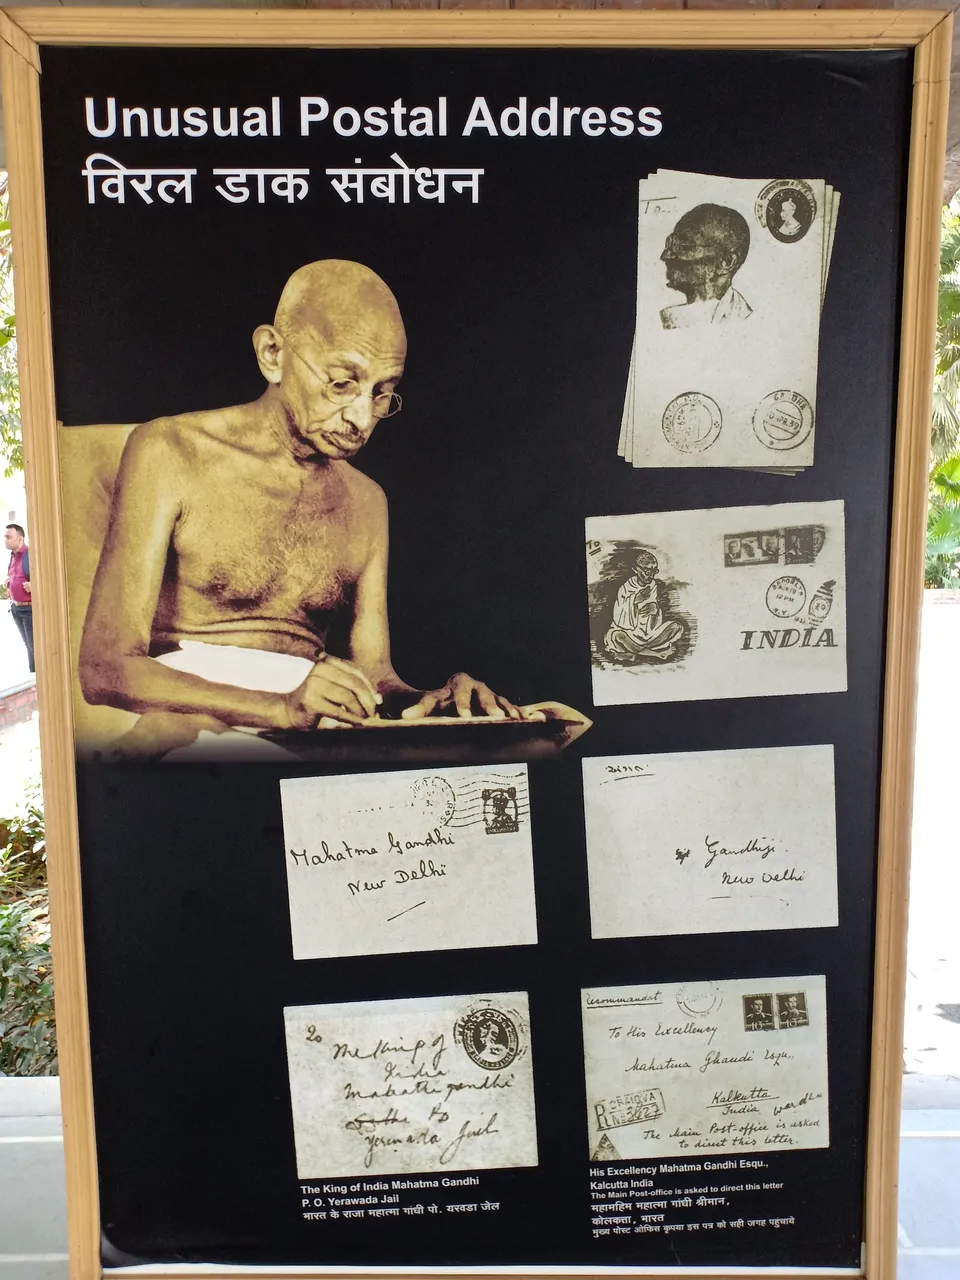 Unusual Postal Address
विरल डाक संबोधन
To
INDIA
Mahatma Gandhi
New Delhi
Gandhiji.
New Delhi
To
The King of
India
Mahathi gandhi
Yerwada Jail
Recommandat
To His Excellency
Mahatma Ghandi Esqu.,
Kalkutta
India
The Main Post-office is asked
to direct this letter.
CRAIOVA
R
The King of India Mahatma Gandhi
P. O. Yerawada Jail
भारत के राजा महात्मा गांधी पो. यरवडा जेल
His Excellency Mahatma Gandhi Esqu.,
Kalcutta India
The Main Post-office is asked to direct this letter
महामहिम महात्मा गांधी श्रीमान,
कोलकत्ता, भारत
मुख्य पोस्ट ऑफिस कृपया इस पत्र को सही जगह पहुंचाये